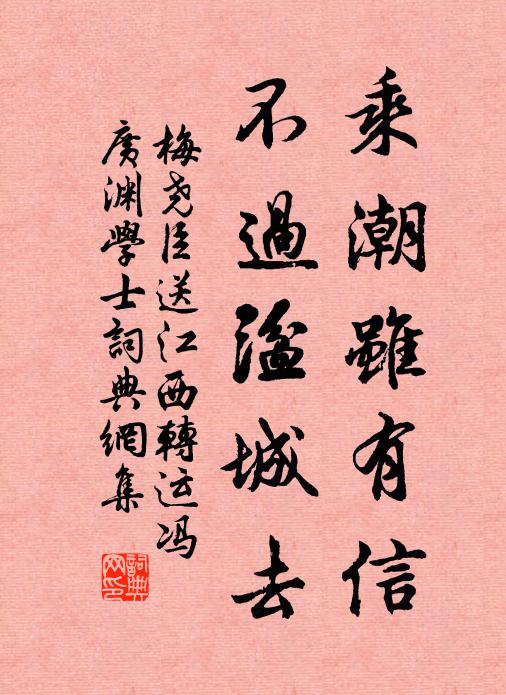 乘潮雖有信
不過溢城去
梅尧臣送江西轉运冯
廣渊學士詞典網集
詞典
网印